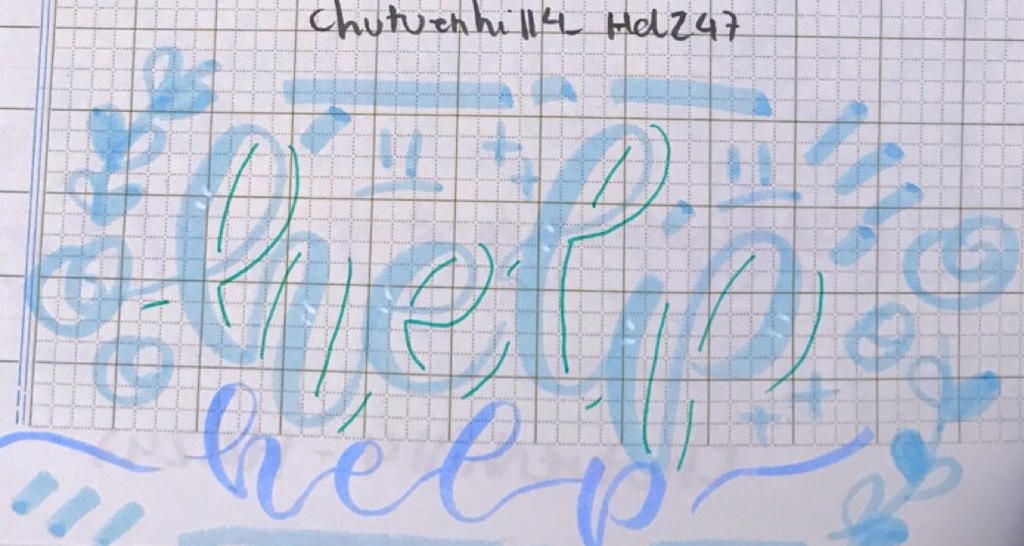 Chutuenhi114 Hd247
help
help